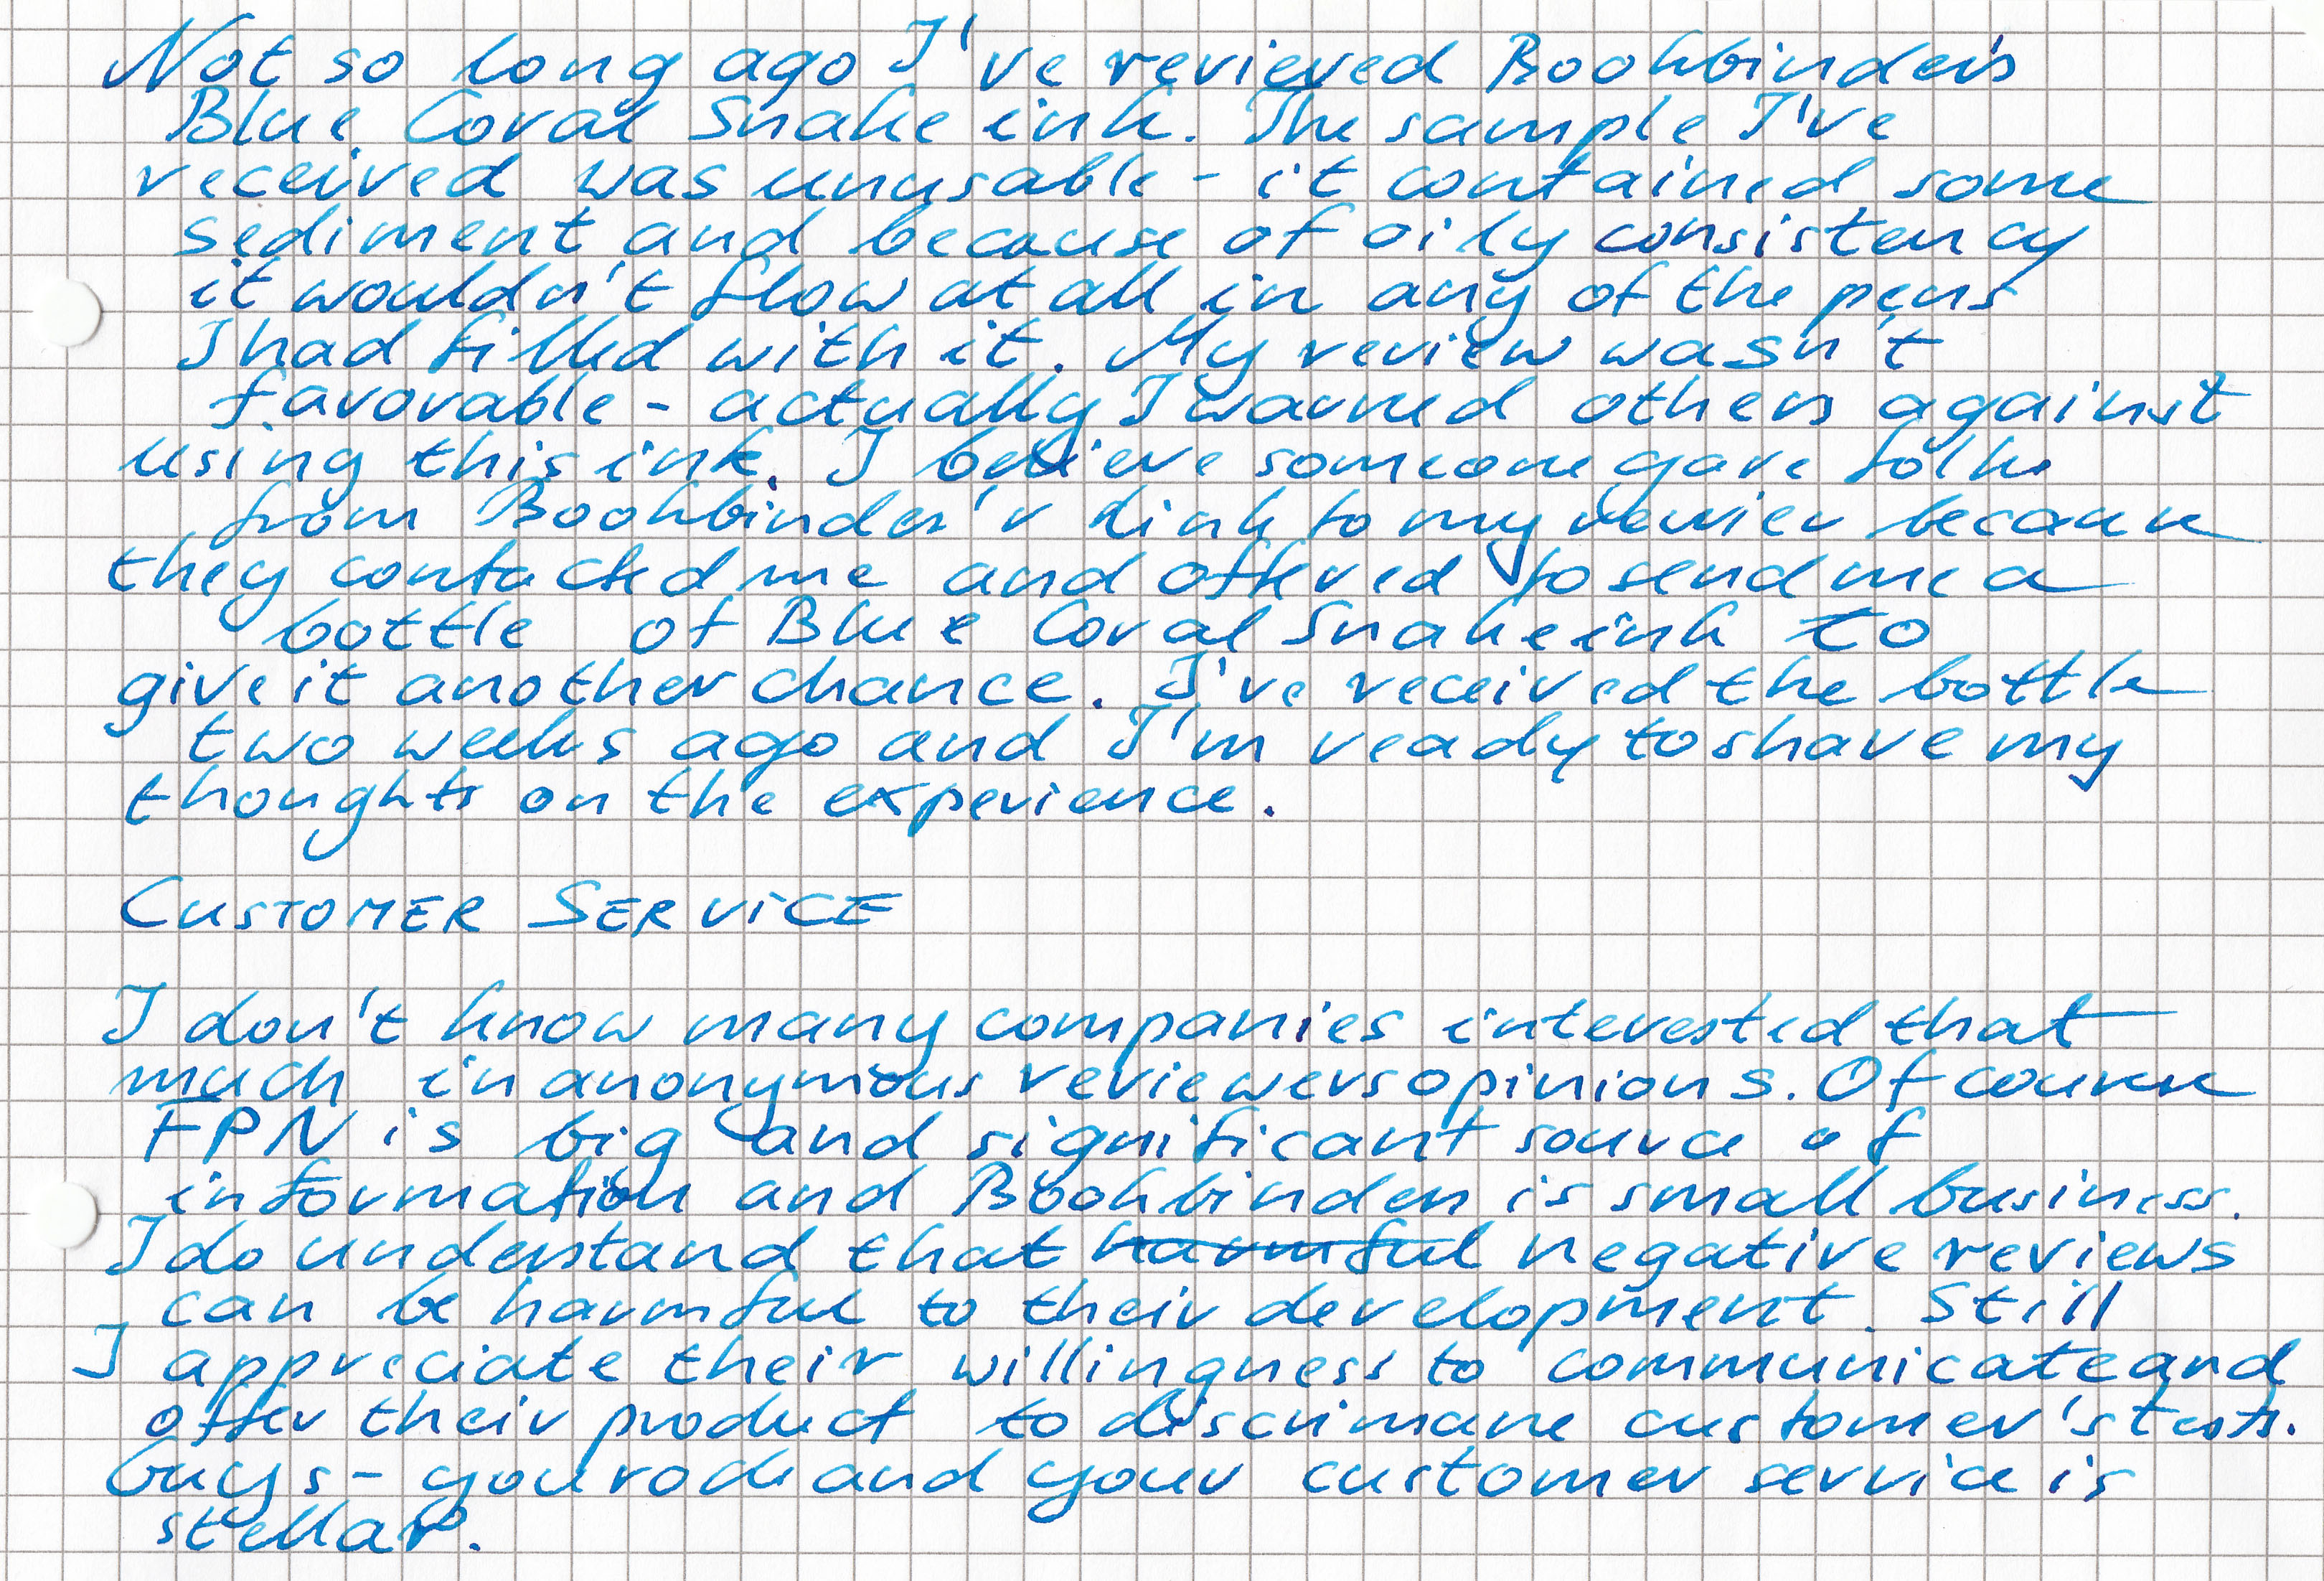 Not so long ago I've reviewed Bookbinders
Blue Coral Snake ink. The sample I've
received was unusable - it contained some
sediment and because of oily consistency
it wouldn't flow at all in any of the pens
I had filled with it. My review wasn't
favorable - actually I warned others against
using this ink. I believe someone gave folks
from Bookbinder's link to my review because
they contacted me and offered to send me a
bottle of Blue Coral Snake ink to
give it another chance. I've received the bottle
two weeks ago and I'm ready to share my
thoughts on the experience.
CUSTOMER SERVICE
I don't know many companies interested that
much in anonymous reviewers opinions. Of course
FPN is big and significant source of
information and Bookbinders is small business.
I do understand that harmful negative reviews
can be harmful to their development. Still
I appreciate their willingness to communicate and
offer their product to customer's tests.
Guys - you rock and your customer service is
stellar.